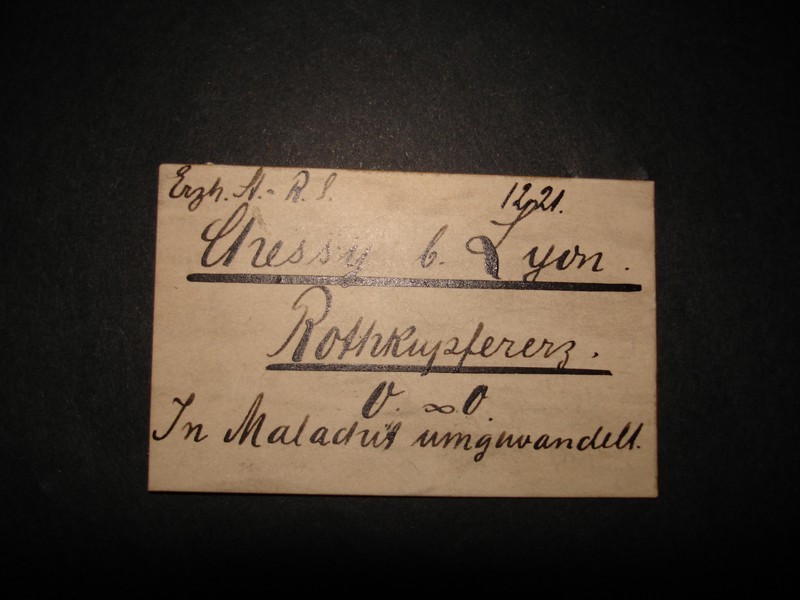 Erzh. St.- R. S. 1221.
Chessy b. Lyon.
Rothkupfererz.
O. ∞O.
In Malachit umgewandelt.